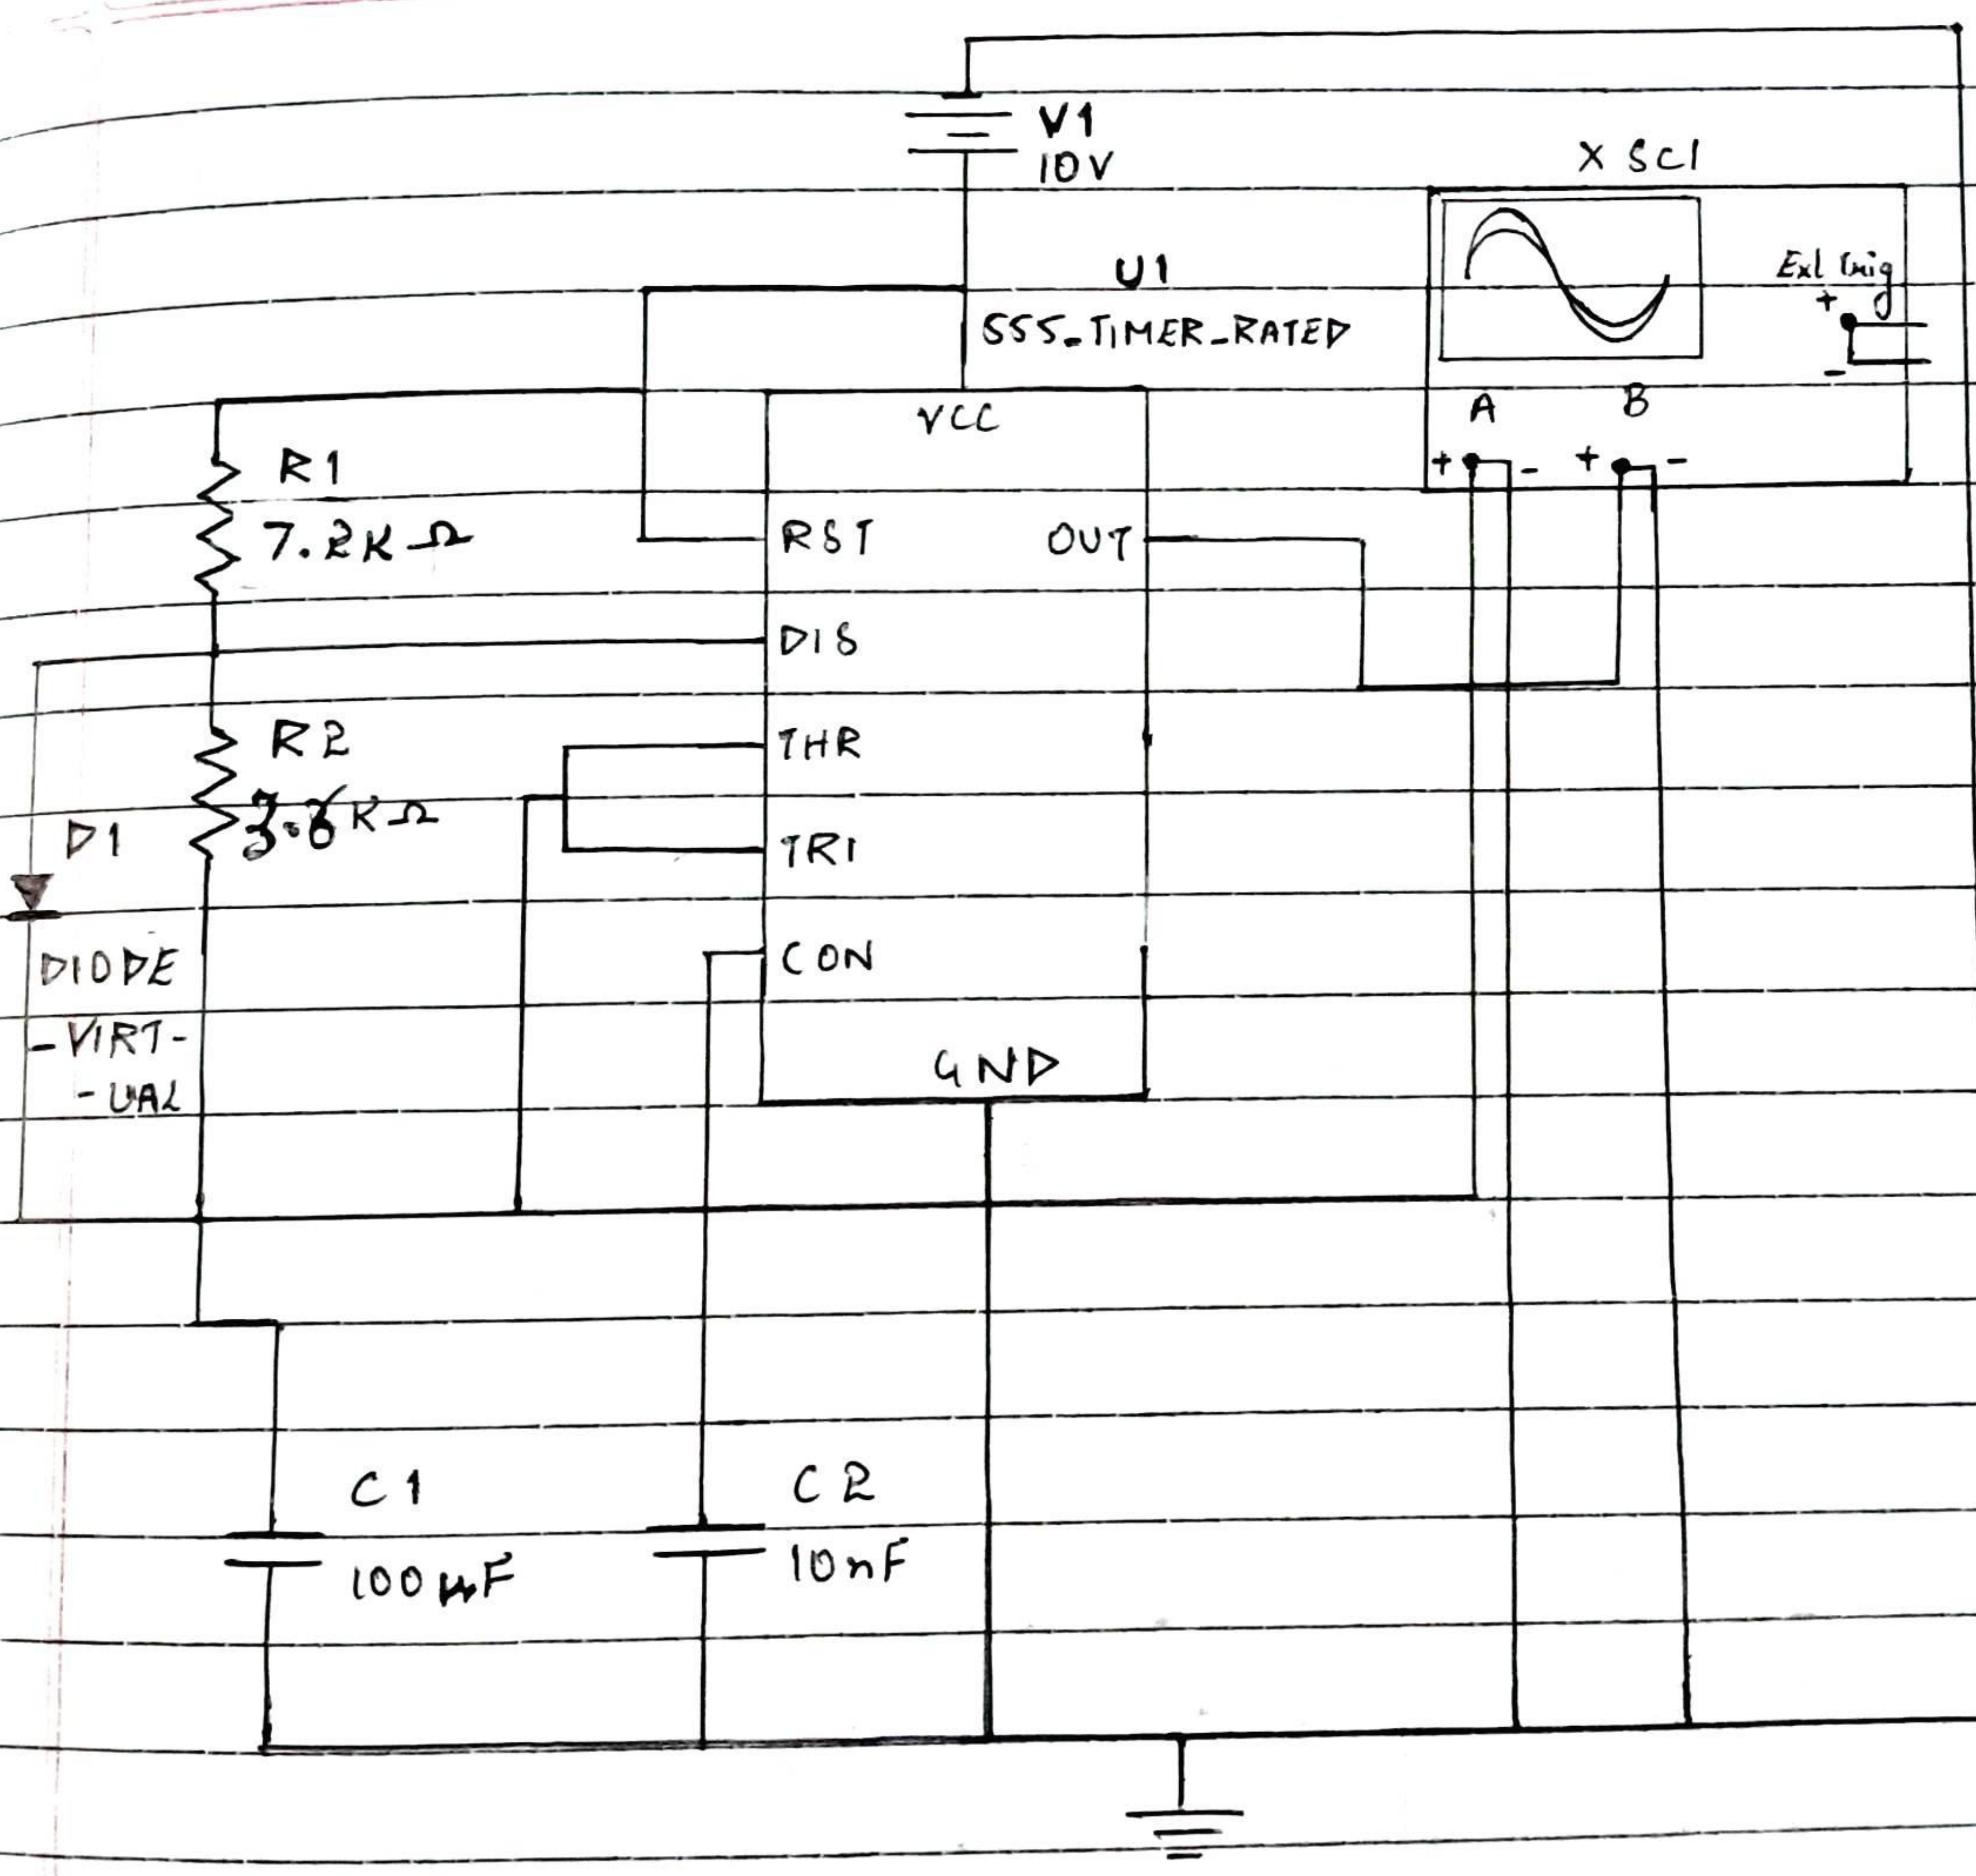 V1
10V
X SC1
Ext Trig
+
-
U1
555_TIMER_RATED
VCC
A
B
+ - + -
R1
7.2KΩ
RST
OUT
DIS
R2
THR
KΩ
D1
TRI
DIODE
CON
-VIRT-
-UAL
GND
C1
100µF
C2
10nF